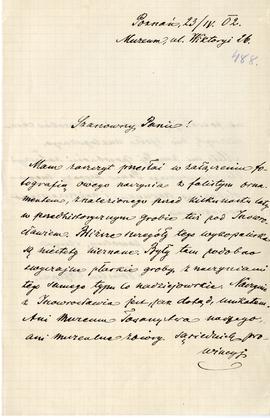 Poznań, 23/IV. 02.
Muzeum, ul. Wiktoryi 26.
488.
Szanowny Panie!
Mam zaszczyt przesłać w załączeniu fo-
tografią owego naczynia z falistym orna-
mentem, znalezionego przed kilkunastu laty
w przedhistorycznym grobie tuż pod Inow-
rocławiem. Bliższe szczegóły tego wykopaliska
są niestety nieznane. Były tam podobno
zwyczajne płaskie groby, z naczyniami
tego samego typu co nadziejowskie. Naczynie
z Inowrocławia jest jak dotąd, unikatem.
Ani muzeum Towarzystwa naszego,
ani muzealne zbiory sąsiednich pro-
wincyj